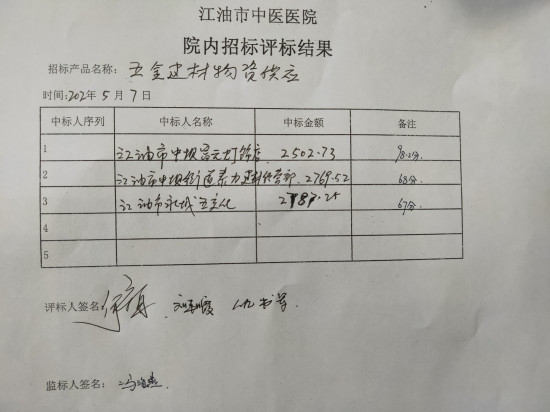 江油市中医医院
院内招标评标结果
招标产品名称：五金建材物资供应
时间:202年5月7日
中标人序列 中标人名称 中标金额 备注
1 江油市中坝 灯饰店 2502.73 98.2分
2 江油市中坝街道 建材经营部 2769.52 68分
3 江油市 五金 67分
4
5
评标人签名:
监标人签名：